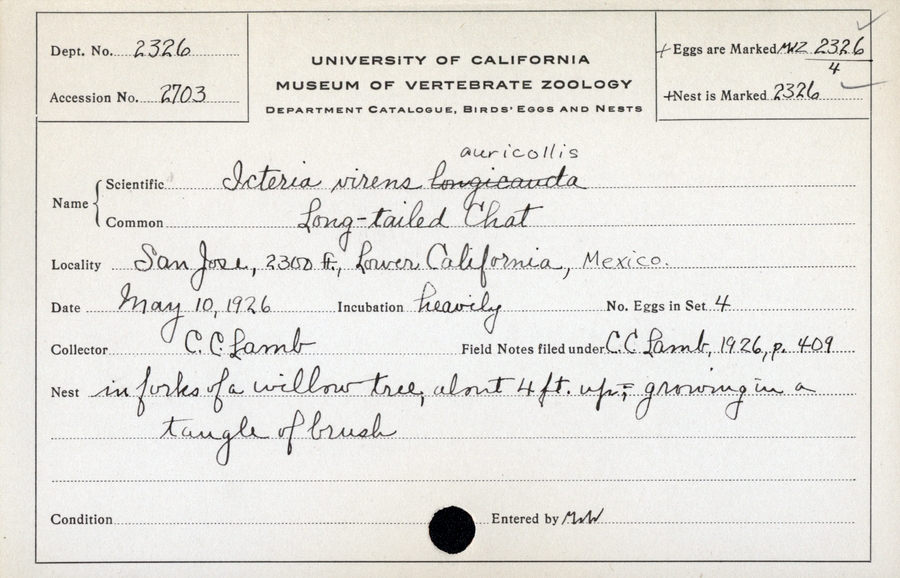 Dept. No. 2326
Accession No. 2703
UNIVERSITY OF CALIFORNIA
MUSEUM OF VERTEBRATE ZOOLOGY
DEPARTMENT CATALOGUE, BIRDS' EGGS AND NESTS
+ Eggs are Marked MVZ 2326
4
+ Nest is Marked 2326
auricollis
Name { Scientific Icteria virens longicauda
Common Long-tailed Chat
Locality San Jose, 2300 ft., Lower California, Mexico.
Date May 10, 1926 Incubation heavily No. Eggs in Set 4
Collector C. C. Lamb Field Notes filed under C. C Lamb, 1926, p. 409
Nest in forks of a willow tree, about 4 ft. up; growing in a
tangle of brush
Condition Entered by